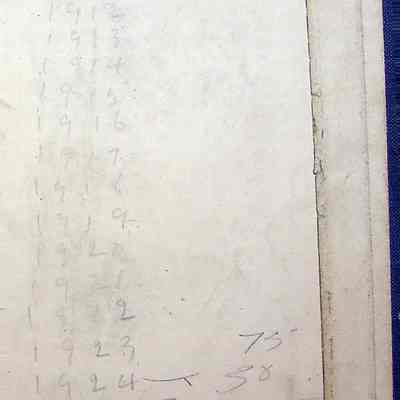 1912
1913
1914
1915
1916
1917
1918
1919
1920
1921
1922
1923 75
1924 — 50